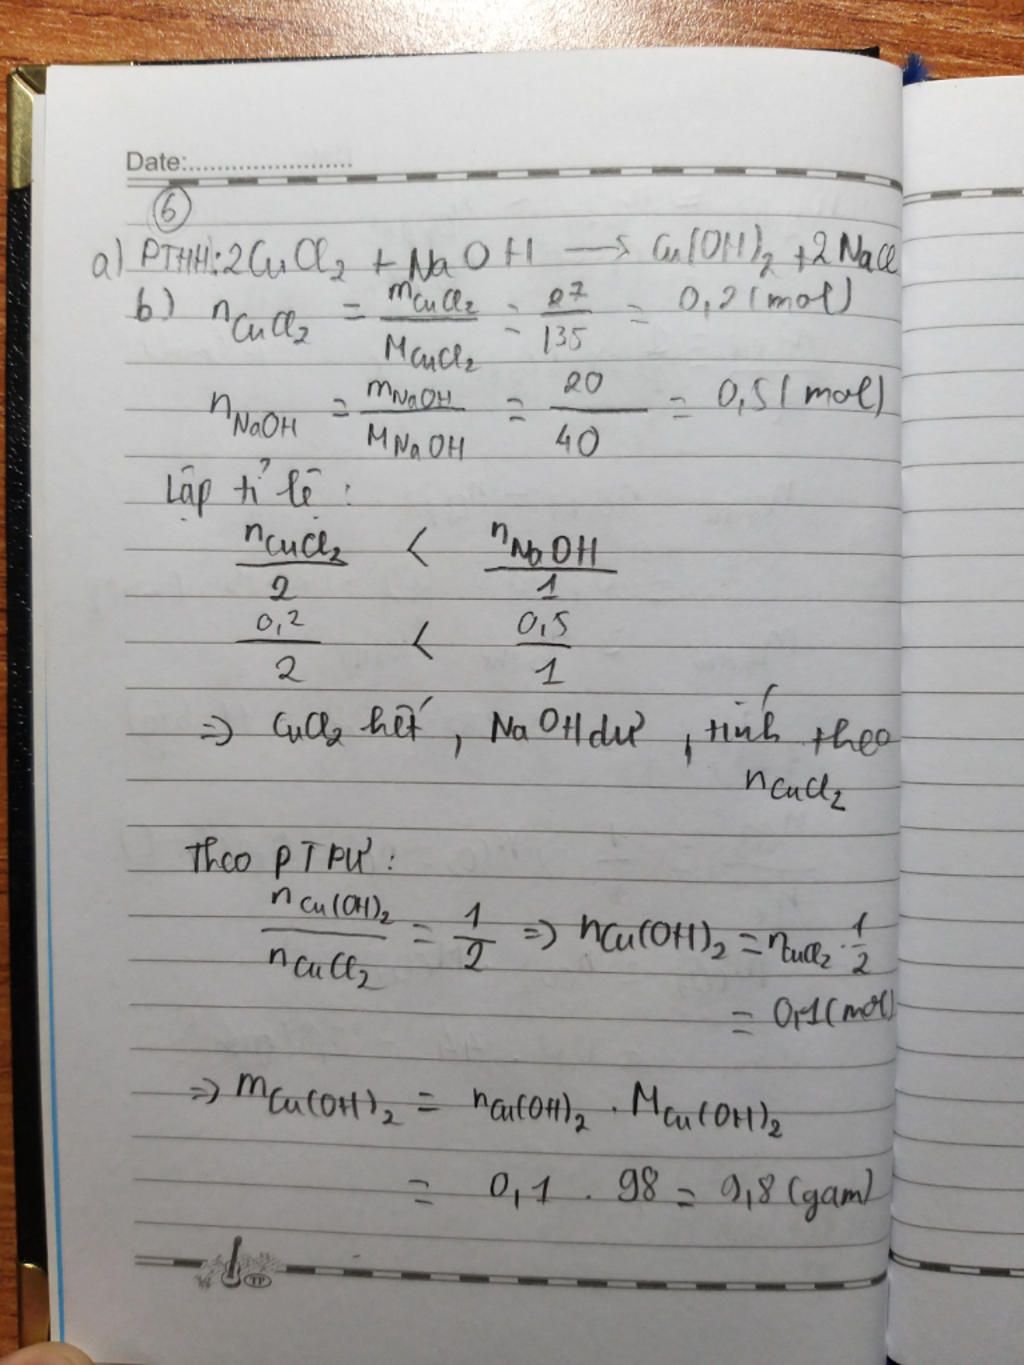 Date:......................
6
a) PTHH: 2CuCl₂ + NaOH → Cu(OH)₂ + 2NaCl
b) n CuCl₂ = m CuCl₂ / M CuCl₂ = 27/135 = 0,2 (mol)
n NaOH = m NaOH / M NaOH = 20/40 = 0,5 (mol)
Lập tỉ lệ :
n CuCl₂ / 2 < n NaOH / 1
0,2/2 < 0,5/1
=> CuCl₂ hết, NaOH dư, tính theo
n CuCl₂
Theo PTPƯ :
n Cu(OH)₂ / n CuCl₂ = 1/2 => n Cu(OH)₂ = n CuCl₂ . 1/2
= 0,1 (mol)
=> m Cu(OH)₂ = n Cu(OH)₂ . M Cu(OH)₂
= 0,1 . 98 = 9,8 (gam)
TP